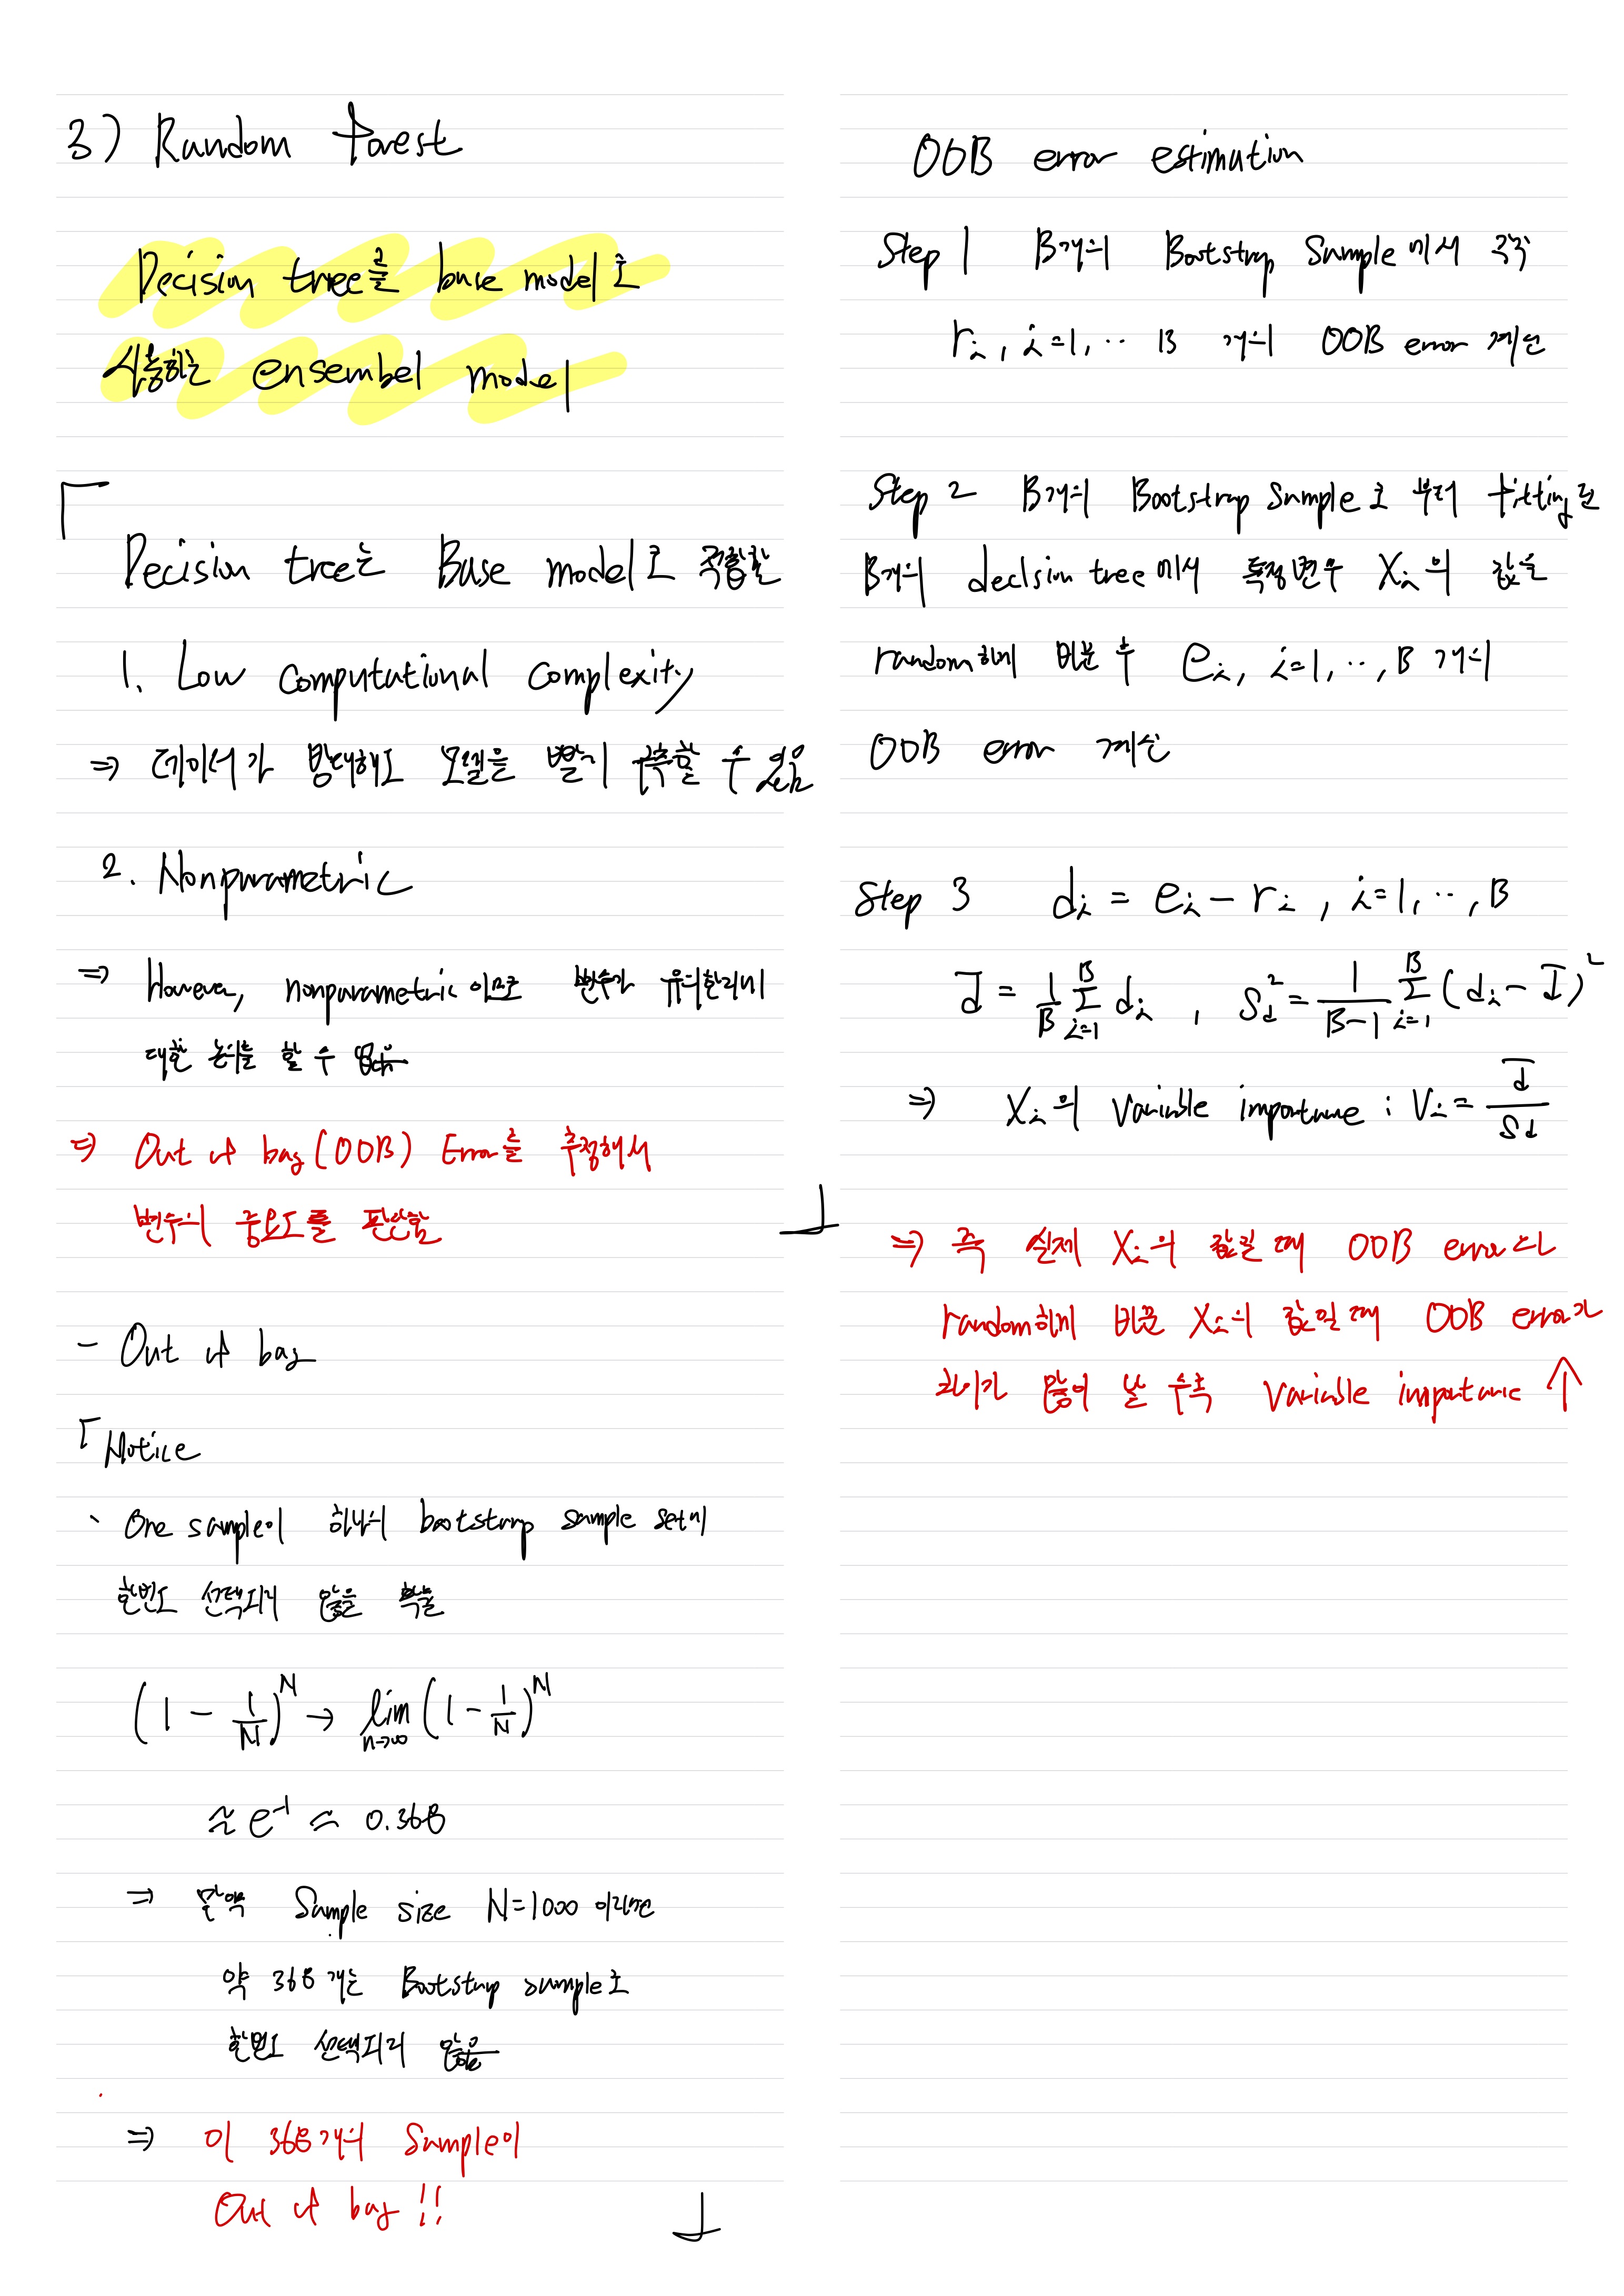 3) Random Forest
Decision tree를 base model로
사용하는 ensembel model
Decision tree는 Base model로 적합함
1. Low computational complexity
⇒ 데이터가 방대해도 모델을 빨리 구축할 수 있음
2. Nonparametric
⇒ However, nonparametric 이므로 변수가 유의한지에
대한 논의를 할 수 없음
⇒ Out of bag (OOB) Error를 추정해서
변수의 중요도를 판단함
- Out of bag
「Notice
One sample이 하나의 bootstrap sample set에
한번도 선택되지 않을 확률
(1 - 1/N)^N → lim n→∞ (1 - 1/N)^N
≈ e^-1 ≈ 0.368
⇒ 만약 Sample size N=1000 이라면
약 368개는 Bootstrap sample로
한번도 선택되지 않음
⇒ 이 368개의 Sample이
Out of bag !!
OOB error estimation
Step 1 B개의 Bootstrap Sample에서 각각
r_i, i=1, ·· B 개의 OOB error 계산
Step 2 B개의 Bootstrap Sample로 부터 fitting된
B개의 decision tree에서 특정변수 X_i의 값을
random하게 바꾼 후 e_i, i=1, ··, B 개의
OOB error 계산
Step 3 d_i = e_i - r_i, i=1, ··, B
d̄ = 1/B Σ_{i=1}^{B} d_i , S_d^2 = 1/(B-1) Σ_{i=1}^{B} (d_i - d̄)^2
⇒ X_i의 Variable importance : V_i = d̄/S_d
⇒ 즉 실제 X_i의 값일 때 OOB error와
random하게 바꾼 X_i의 값일 때 OOB error가
차이가 많이 날 수록 Variable importance ↑